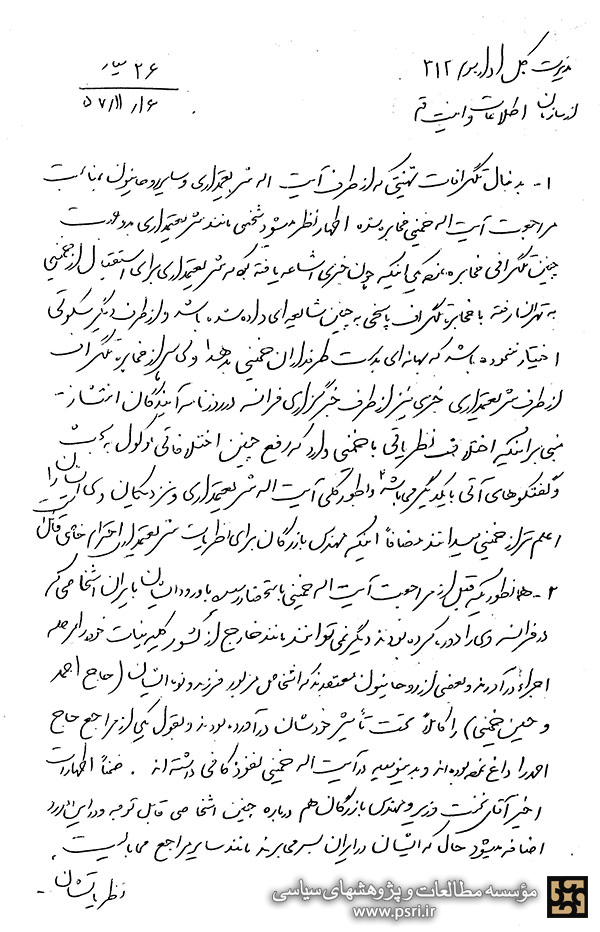 مدیریت کل اداره سوم ۳۱۲
۲۶ سیار
از سازمان اطلاعات و امنیت قم
۵۷/۱۱/۱۶
۱- بدنبال تلگرافات تهنیتی که از طرف آیت اله شریعتمداری و سایر روحانیون بمناسبت
مراجعت آیت اله خمینی مخابره شده اظهار نظر میشود شخصی مانند شریعتمداری بدو جهت
چنین تلگرافی مخابره نموده یکی اینکه چون خبری اشاعه یافته بود که شریعتمداری برای استقبال از خمینی
به تهران رفته با مخابره تلگراف پاسخی به چنین شایعه‌ای داده شده باشد و از طرف دیگر سکوتی
اختیار ننموده باشد که بهانه‌ای بدست طرفداران خمینی بدهد ولی پس از مخابره تلگراف
از طرف شریعتمداری خبری نیز از طرف خبرگزاری فرانسه در روزنامه آیندگان انتشار
مبنی بر اینکه اختلاف نظریاتی با خمینی دارد که رفع چنین اختلافاتی موکول به بحث
و گفتگوهای آتی با یکدیگر می‌باشد و بطور کلی آیت اله شریعتمداری و نزدیکان وی ایشان را
اعلم تر از خمینی میدانند مضافاً اینکه مهندس بازرگان برای نظریات شریعتمداری احترام خاصی قائل
۲- همانطوریکه قبل از مراجعت آیت اله خمینی باستحضار رسید با ورود ایشان بایران اشخاصی که
در فرانسه وی را دوره کرده بودند دیگر نمی‌توانند مانند خارج از کشور کلیه نیات خود را بمرحله
اجراء درآورند و بعضی از روحانیون معتقدند که اشخاص مزبور فرزند و نوه ایشان (حاج احمد
و حسین خمینی) را کاملاً تحت تأثیر خودشان درآورده بودند و بقول یکی از مراجع حاج
احمد را داغ نموده‌اند و بدینوسیله در آیت اله خمینی نفوذ کافی داشته‌اند . ضمناً اظهارات
اخیر آقای نخست وزیر و مهندس بازرگان هم درباره چنین اشخاصی قابل توجه و در این مورد
اضافه میشود حال که ایشان در ایران بسر می‌برند مانند سایر مراجع می‌بایست
نظریاتشان -
مؤسسه مطالعات و پژوهشهای سیاسی
www.psri.ir